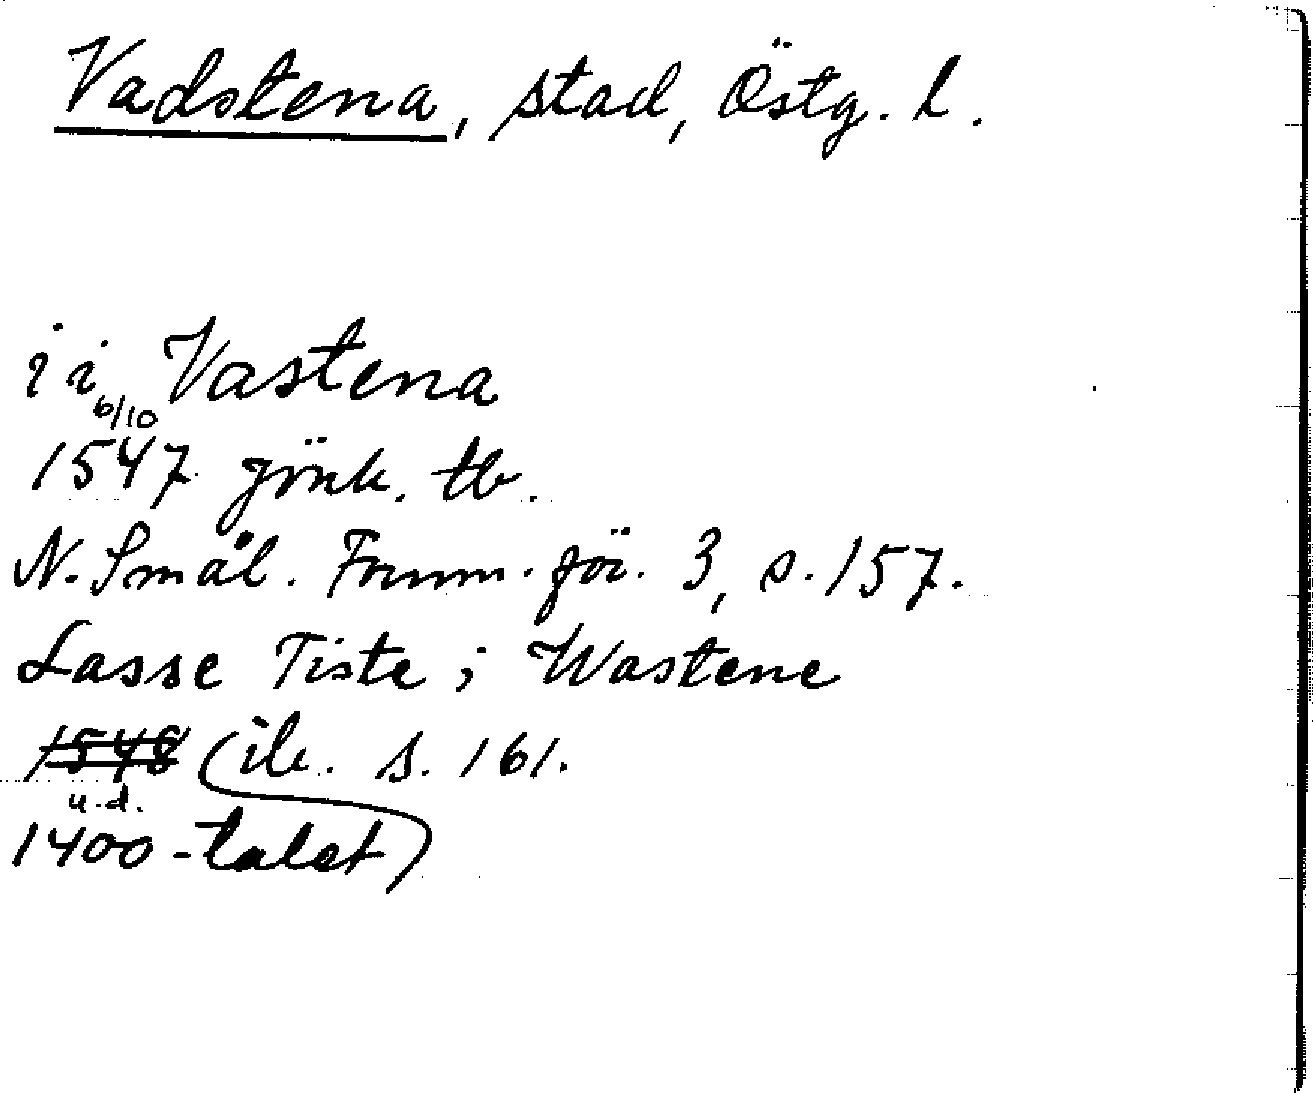 Vadstena, stad, Östg. l.
i i Vastena
6/10
1547 Jönk. tb.
N. Smål. Fornm. för. 3, s. 157.
Lasse Tiste i Wastene
1548 (ib. s. 161.
u.d.
1400-talet)